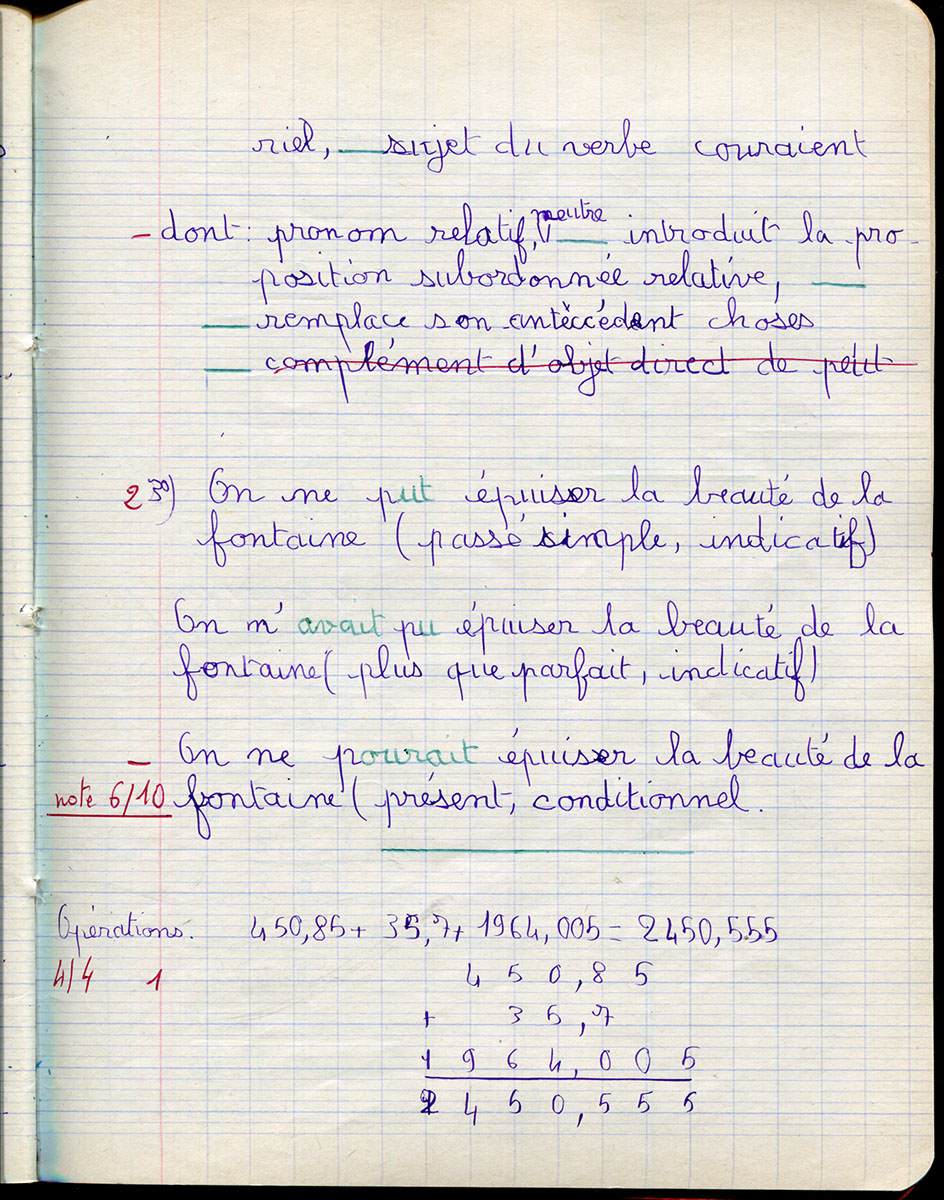 riel, — sujet du verbe couraient
– dont : pronom relatif, neutre — introduit la pro-
position subordonnée relative, —
— remplace son antèccédent choses
— complément d'objet direct de petit
2 3º) On ne put épuiser la beauté de la
fontaine (passé simple, indicatif)
On n'avait pu épuiser la beauté de la
fontaine (plus que parfait, indicatif)
– On ne pourait épuiser la beauté de la
note 6/10 fontaine (présent, conditionnel.
Opérations. 450,85 + 35,7 + 1964,005 = 2450,555
4/4 1 450,85
+ 35,7
1964,005
2450,555